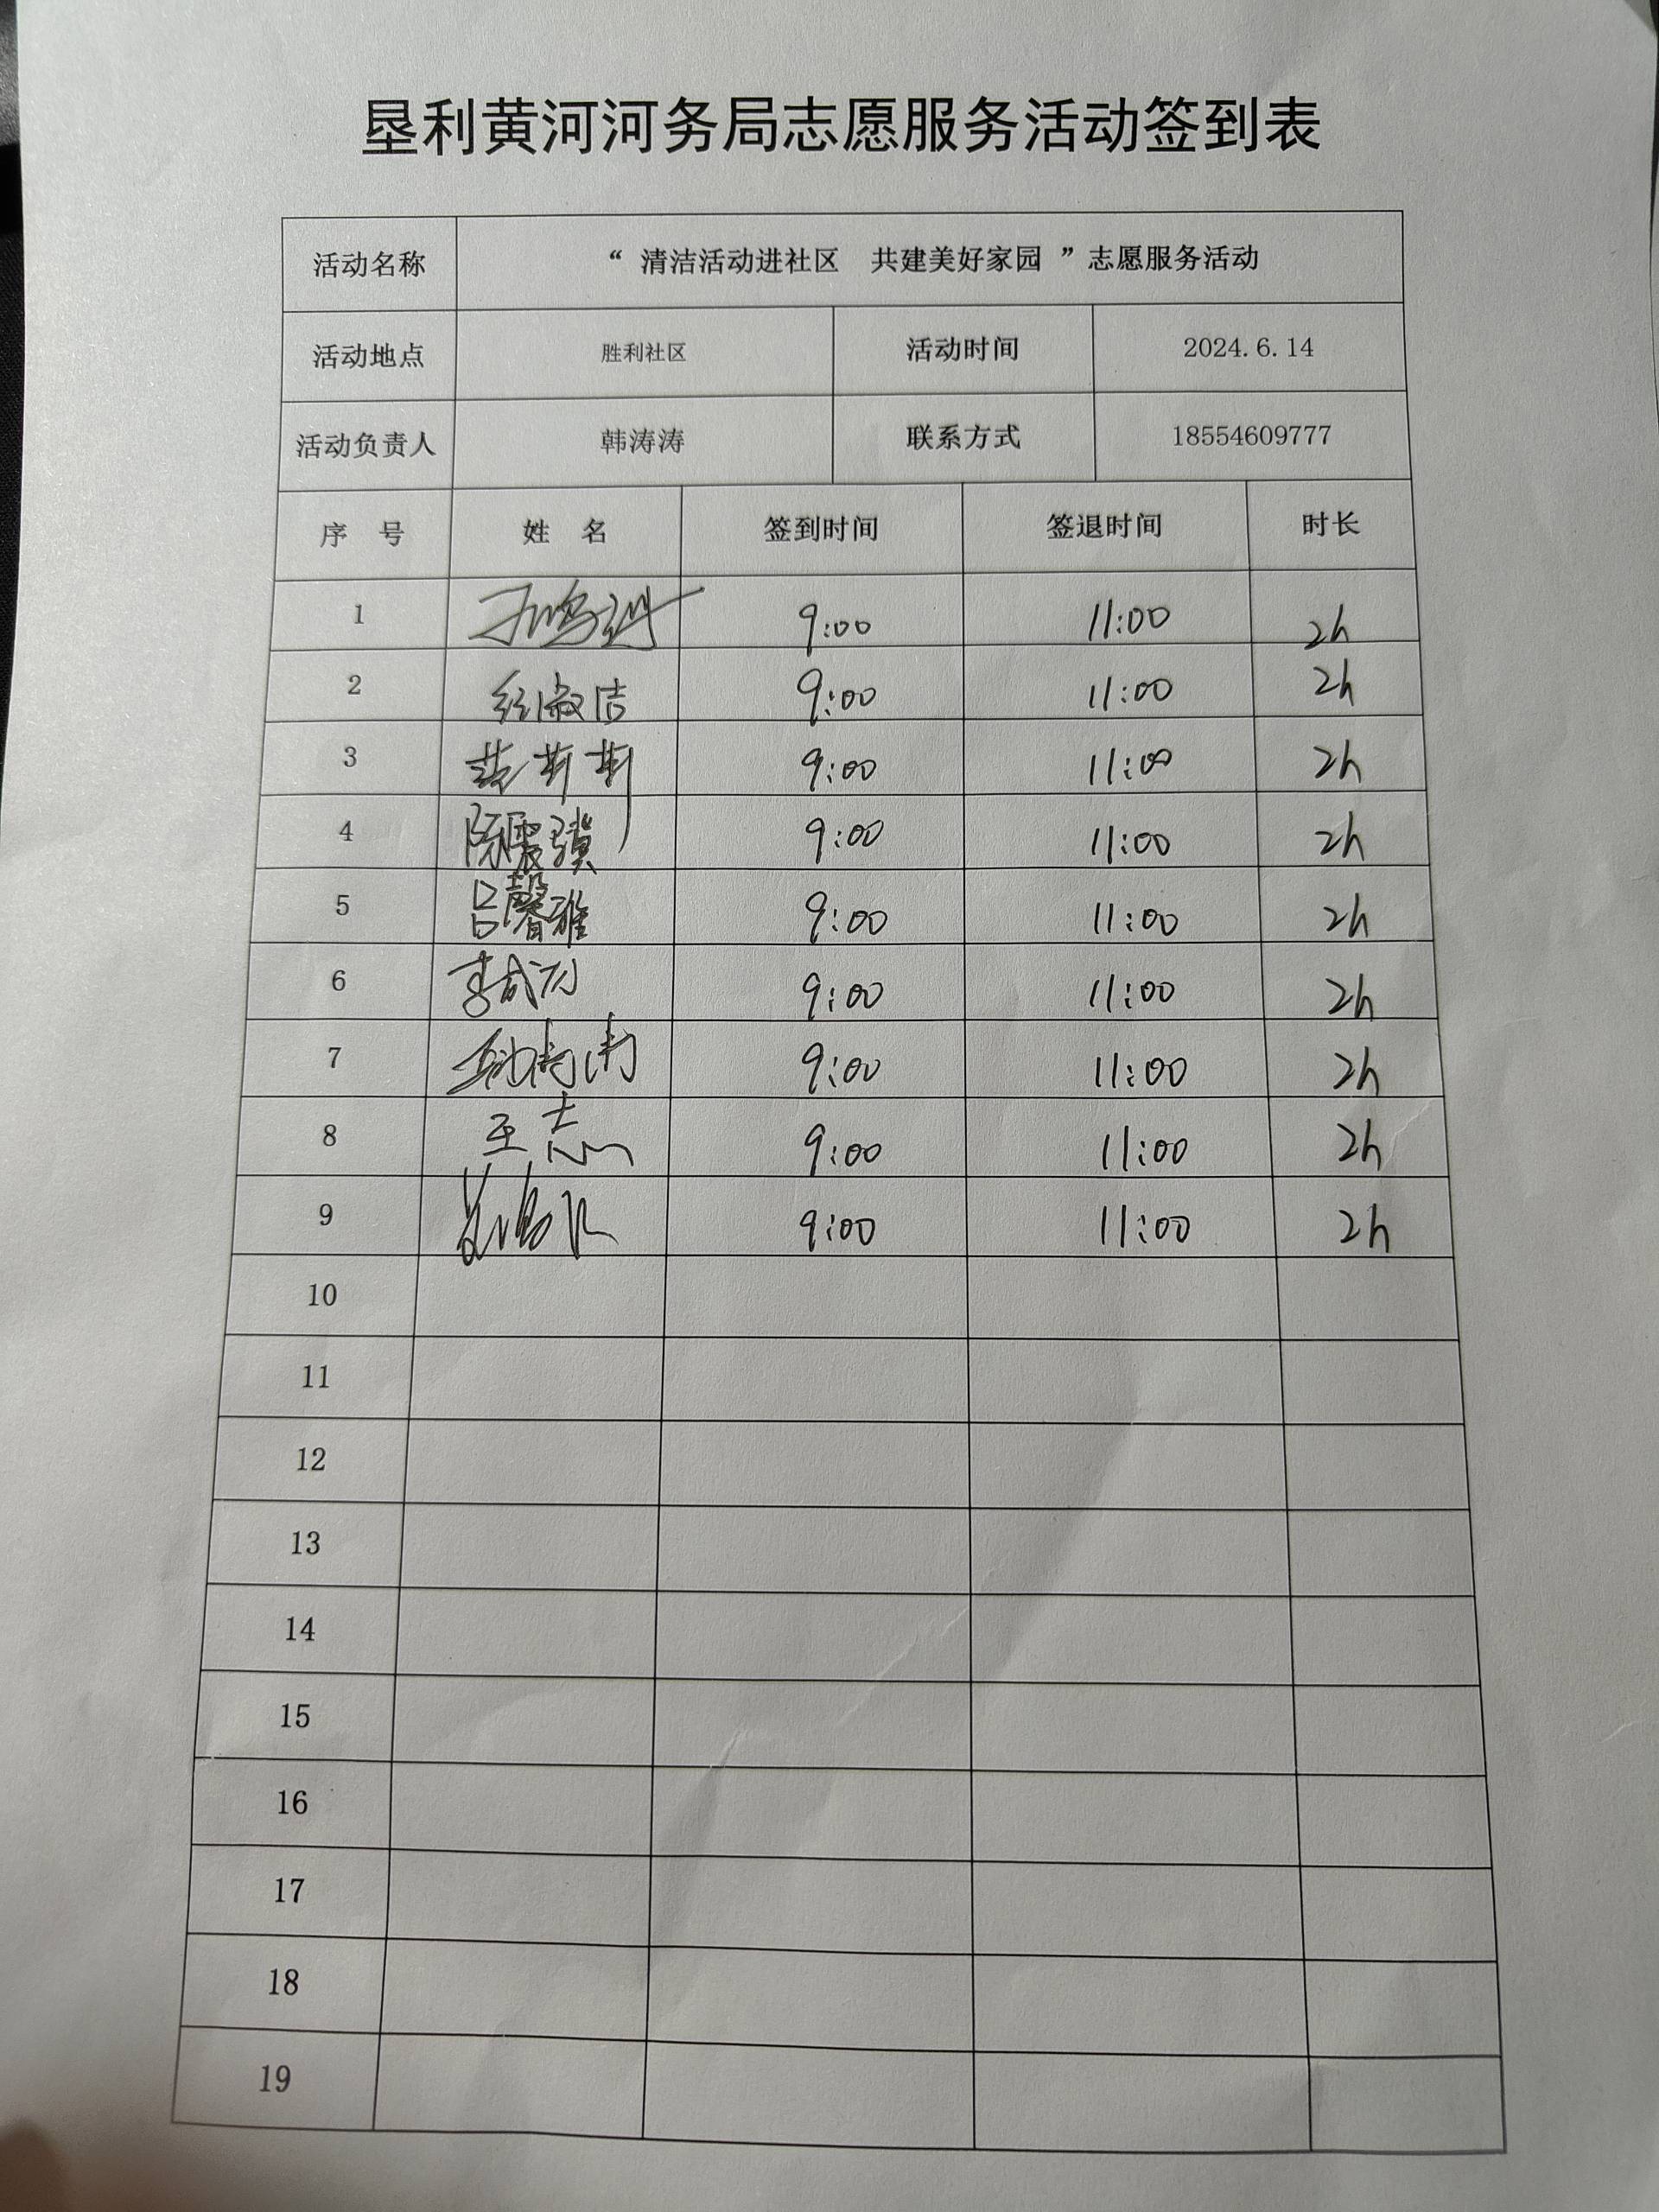 垦利黄河河务局志愿服务活动签到表
活动名称 “ 清洁活动进社区 共建美好家园 ”志愿服务活动
活动地点 胜利社区 活动时间 2024.6.14
活动负责人 韩涛涛 联系方式 18554609777
序 号 姓 名 签到时间 签退时间 时长
1 9:00 11:00 2h
2 淑洁 9:00 11:00 2h
3 9:00 11:00 2h
4 陈震骥 9:00 11:00 2h
5 吕馨雅 9:00 11:00 2h
6 李成 9:00 11:00 2h
7 9:00 11:00 2h
8 王志 9:00 11:00 2h
9 9:00 11:00 2h
10
11
12
13
14
15
16
17
18
19